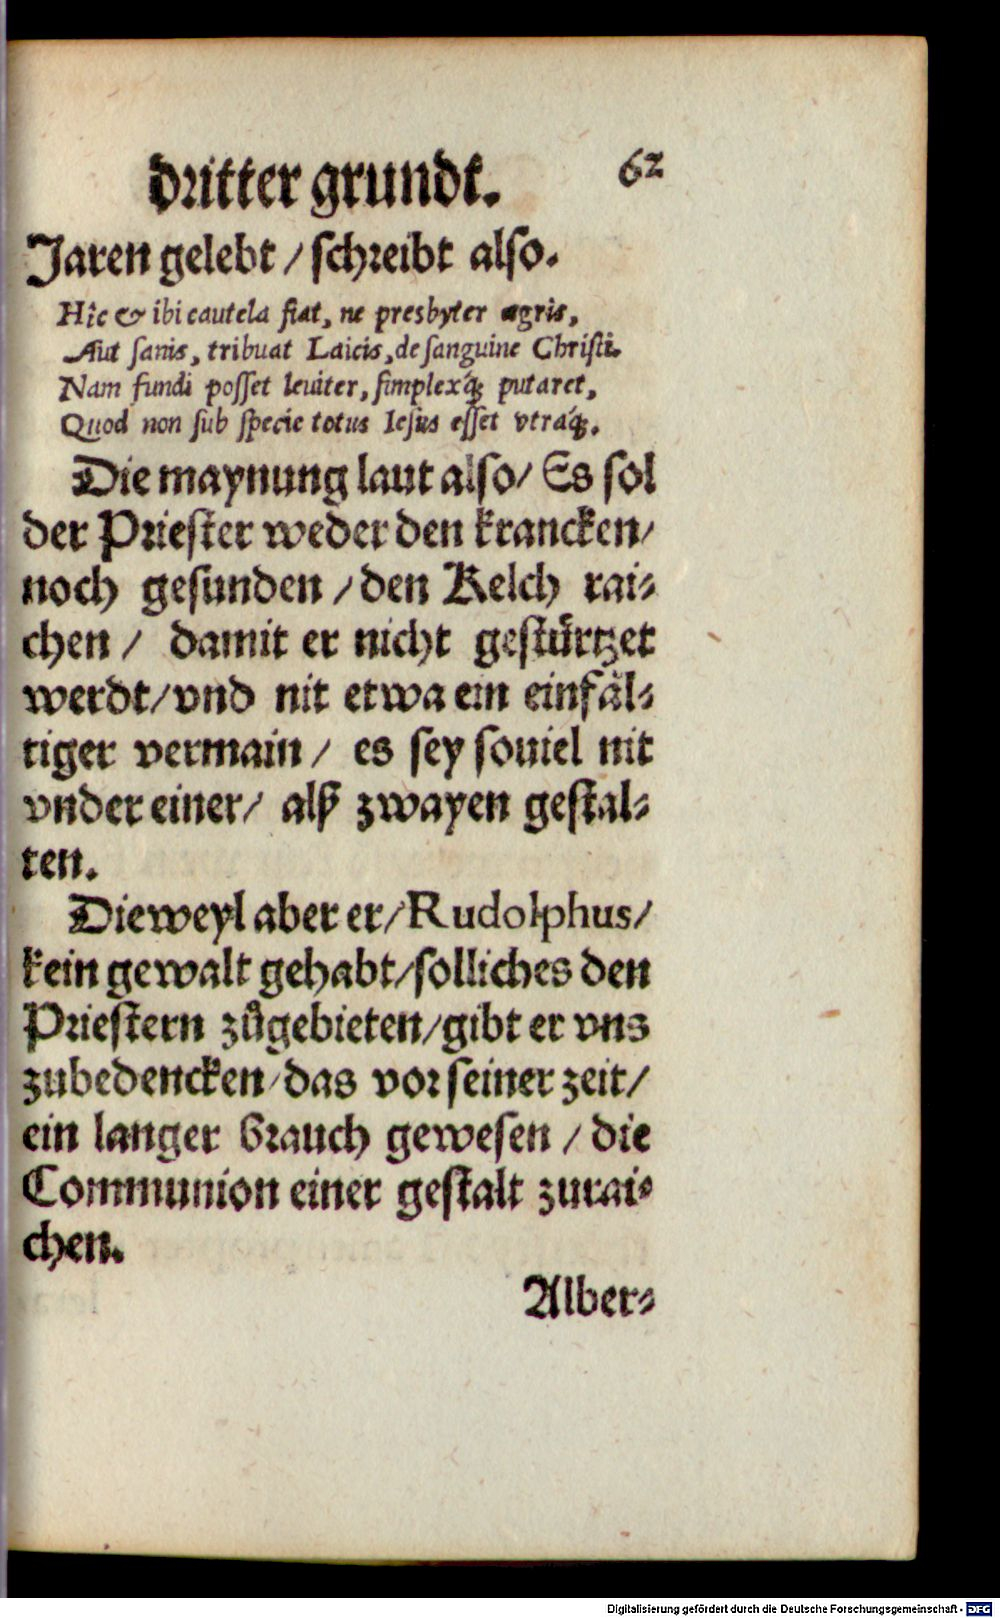 dritter grundt. 62
Jaren gelebt / schreibt also.
Hîc & ibi cautela fiat, ne presbyter ægris,
Aut sanis, tribuat Laicis, de sanguine Christi.
Nam fundi posset leuiter, simplexq́; putaret,
Quod non sub specie totus Iesus esset vtraq́;.
Die maynung laut also / Es sol
der Priester weder den krancken /
noch gesunden / den Kelch rai⸗
chen / damit er nicht gestürtzet
werdt / vnd nit etwa ein einfäl⸗
tiger vermain / es sey souiel nit
vnder einer / alß zwayen gestal⸗
ten.
Dieweyl aber er / Rudolphus /
kein gewalt gehabt / solliches den
Priestern zůgebieten / gibt er vns
zubedencken / das vor seiner zeit /
ein langer brauch gewesen / die
Communion einer gestalt zurai⸗
chen.
Alber⸗
Digitalisierung gefördert durch die Deutsche Forschungsgemeinschaft - DFG